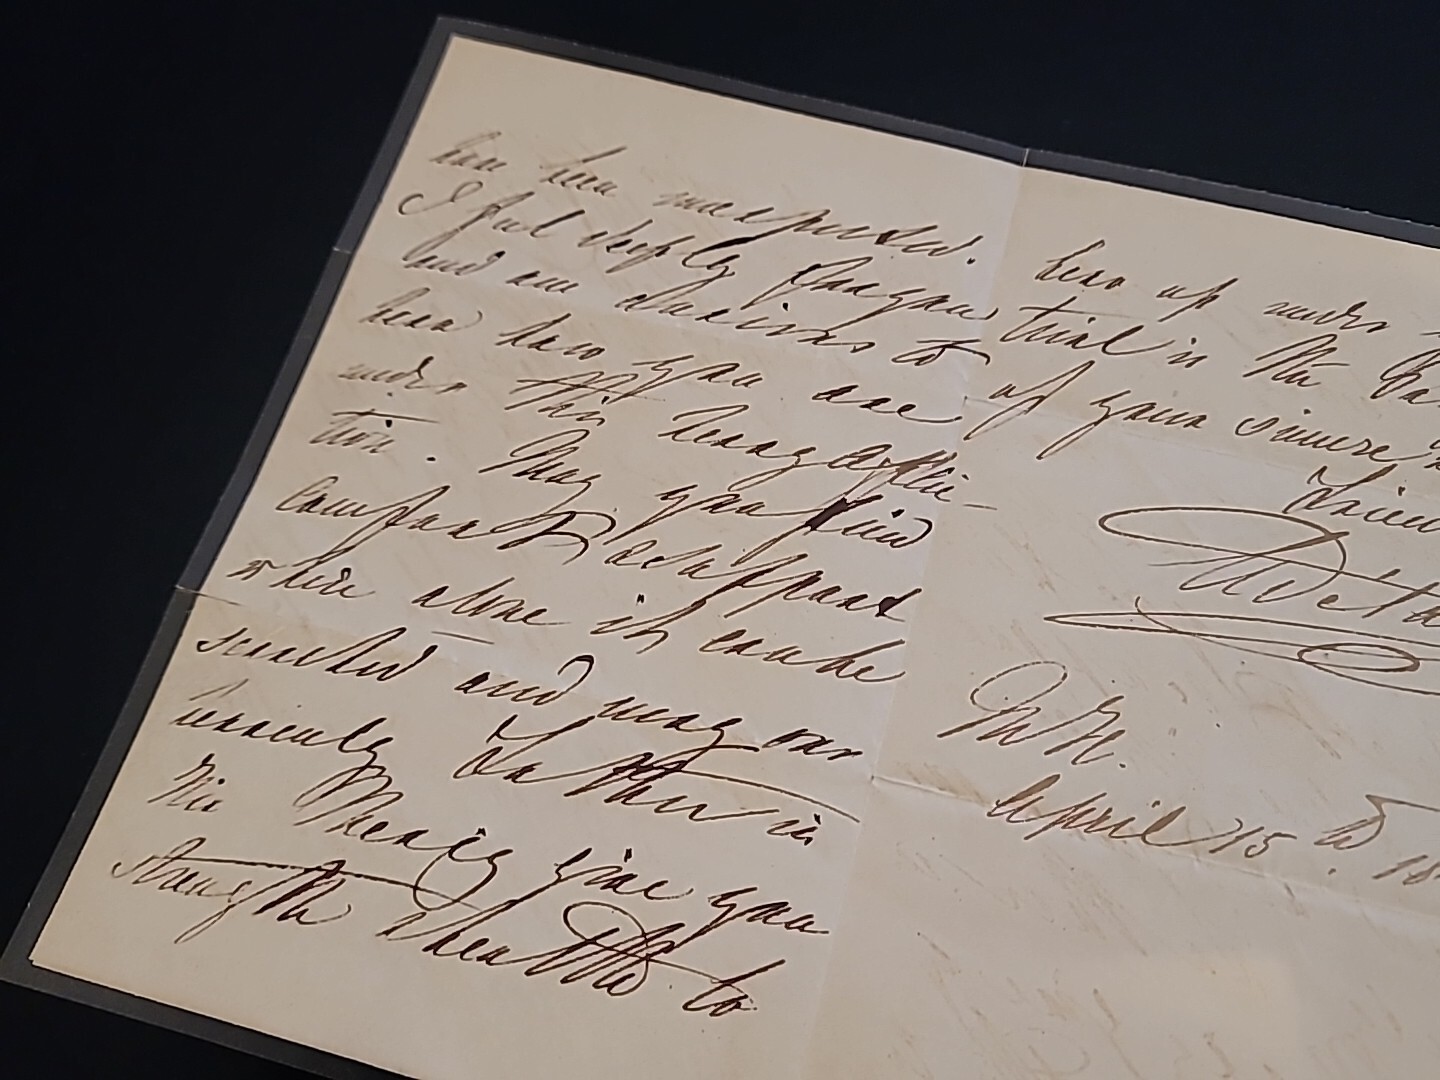 have been unexpected.
I feel deeply for you
and am desirous to
hear how you are
under this heavy afflic-
tion. May you find
comfort & support
where alone it can be
searched and may our
heavenly Father in
His Mercy give you
strength & health to
bear up under
trial is the
of your sincere
friend
April 15